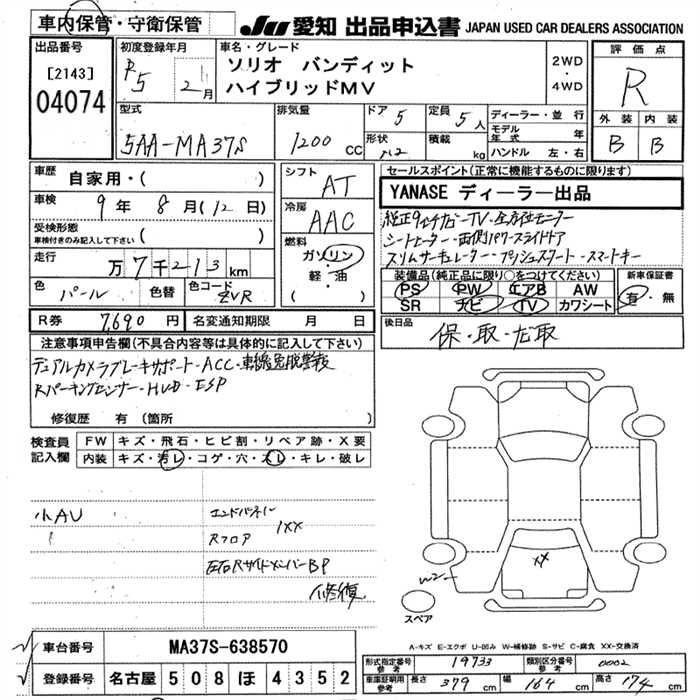 車内保管・守衛保管
JU 愛知 出品申込書 JAPAN USED CAR DEALERS ASSOCIATION
出品番号
[2143]
04074
初度登録年月
R5 2月
車名・グレード
ソリオ バンディット
ハイブリッドMV
2WD
・
4WD
評価点
R
外装 内装
B B
型式
5AA-MA37S
排気量
1200 cc
ドア 5
形状
定員 5人
積載 kg
ディーラー・並行
モデル年式 年
ハンドル 左・右
車歴
自家用・( )
車検 9年 8月(12日)
受検形態
車検付きのみ記入して下さい ( )
走行
万7千213km
色 パール 色替 色コード ZVR
シフト
AT
冷房
AAC
燃料
ガソリン
・
軽・油
( )
セールスポイント(正常に機能するものに限ります)
YANASE ディーラー出品
純正9インチナビ-TV・全方位モニター
シートヒーター・両側パワースライドドア
スリムサーキュレーター・プッシュスタート・スマートキー
装備品(純正品に限り○をつけてください) 新車保証書
PS PW エアB AW
SR ナビ TV カワシート
有・無
R券 7,690円 名変通知期限 月 日
後日品
保・取・ナビ取
注意事項申告欄(不具合内容等は具体的に記入して下さい)
デュアルカメラブレーキサポート・ACC・車線逸脱警報
Rパーキングセンサー・HUD・ESP
修復歴 有 (箇所 )
検査員
記入欄
FW キズ・飛石・ヒビ割・リペア跡・X要
内装 キズ・汚レ・コゲ・穴・スレ・キレ・破レ
小AU
エンドパネル
1XX
Rフロア
左右Rサイドメンバー BP
修復
XX
W2
スペア
A-キズ E-エクボ U-凹み W-補修跡 S-サビ C-腐食 XX-交換済
車台番号 MA37S-638570
登録番号 名古屋 508 ほ 4352
形式指定番号 参考 19733 類別区分番号 参考 0002
車庫証明用参考 長さ 379 cm 幅 164 cm 高さ 174 cm